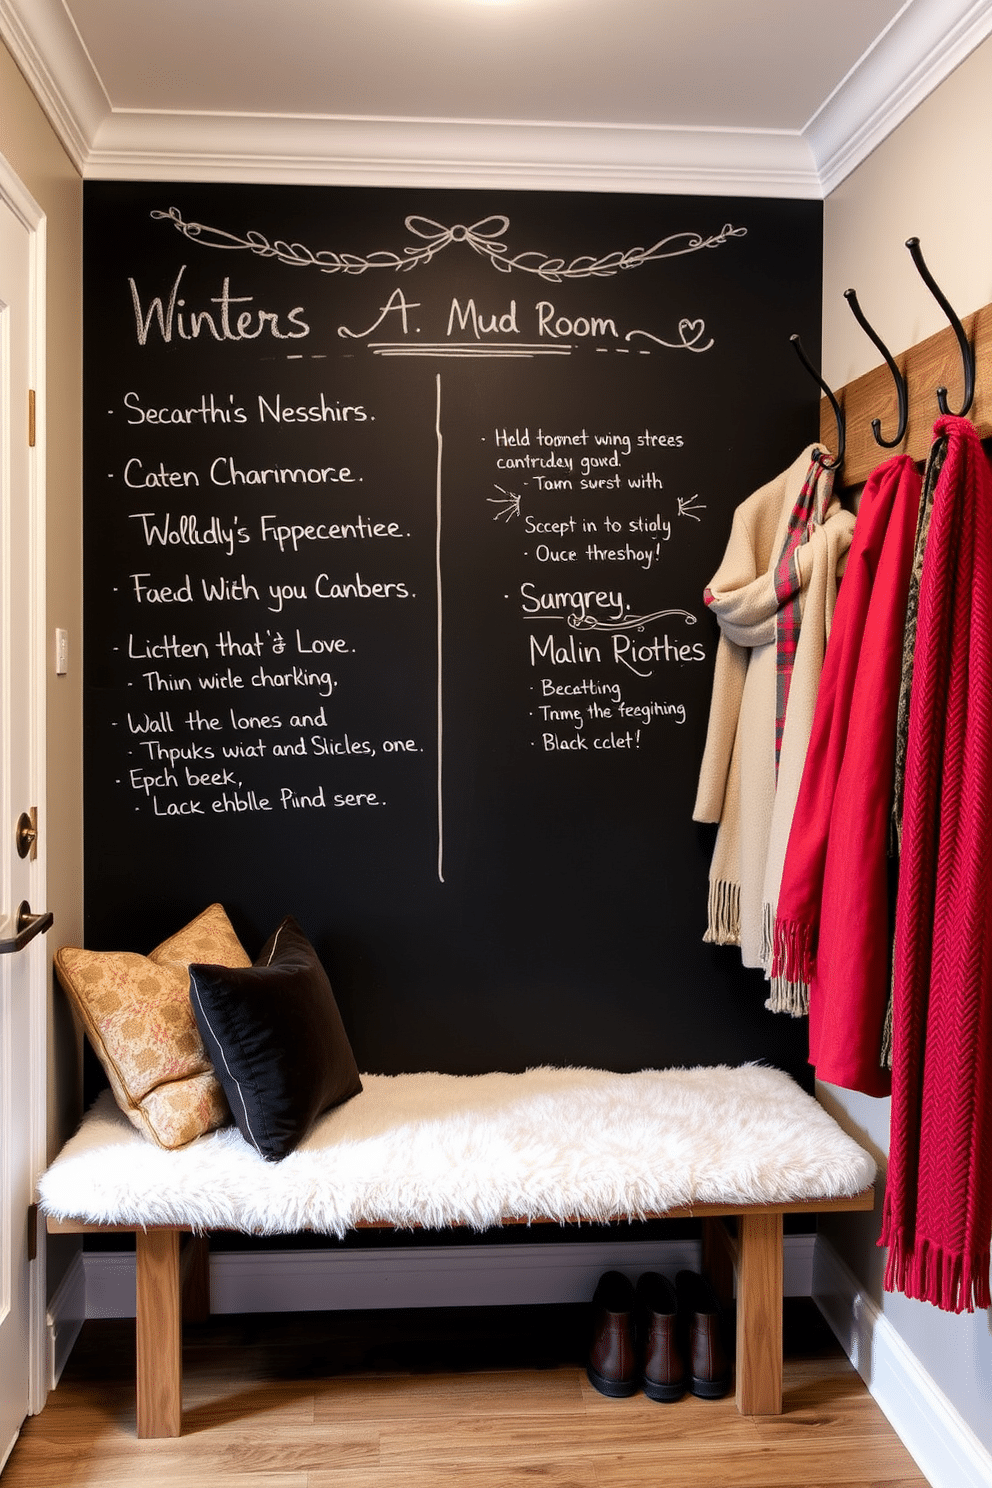 Winters A. Mud Room
· Secarthi's Nesshirs.
· Caten Charinmore.
Wolldly's Fippecentiee.
· Faed With you Canbers.
· Licthen that's Love.
· Thin wirle chorking,
· Wall the lones and
· Thpuks wiat and Slicles, one.
· Epch beek,
· Lack ehblle Pind sere.
· Held tomnet wing strees
cantridey govd.
- Tom swest with
Sccept in to stigly
· Ouce threshoy!
· Sumgrey.
Malin Riotties
· Becatting
· Tnmg the feegihing
· Black cclet!